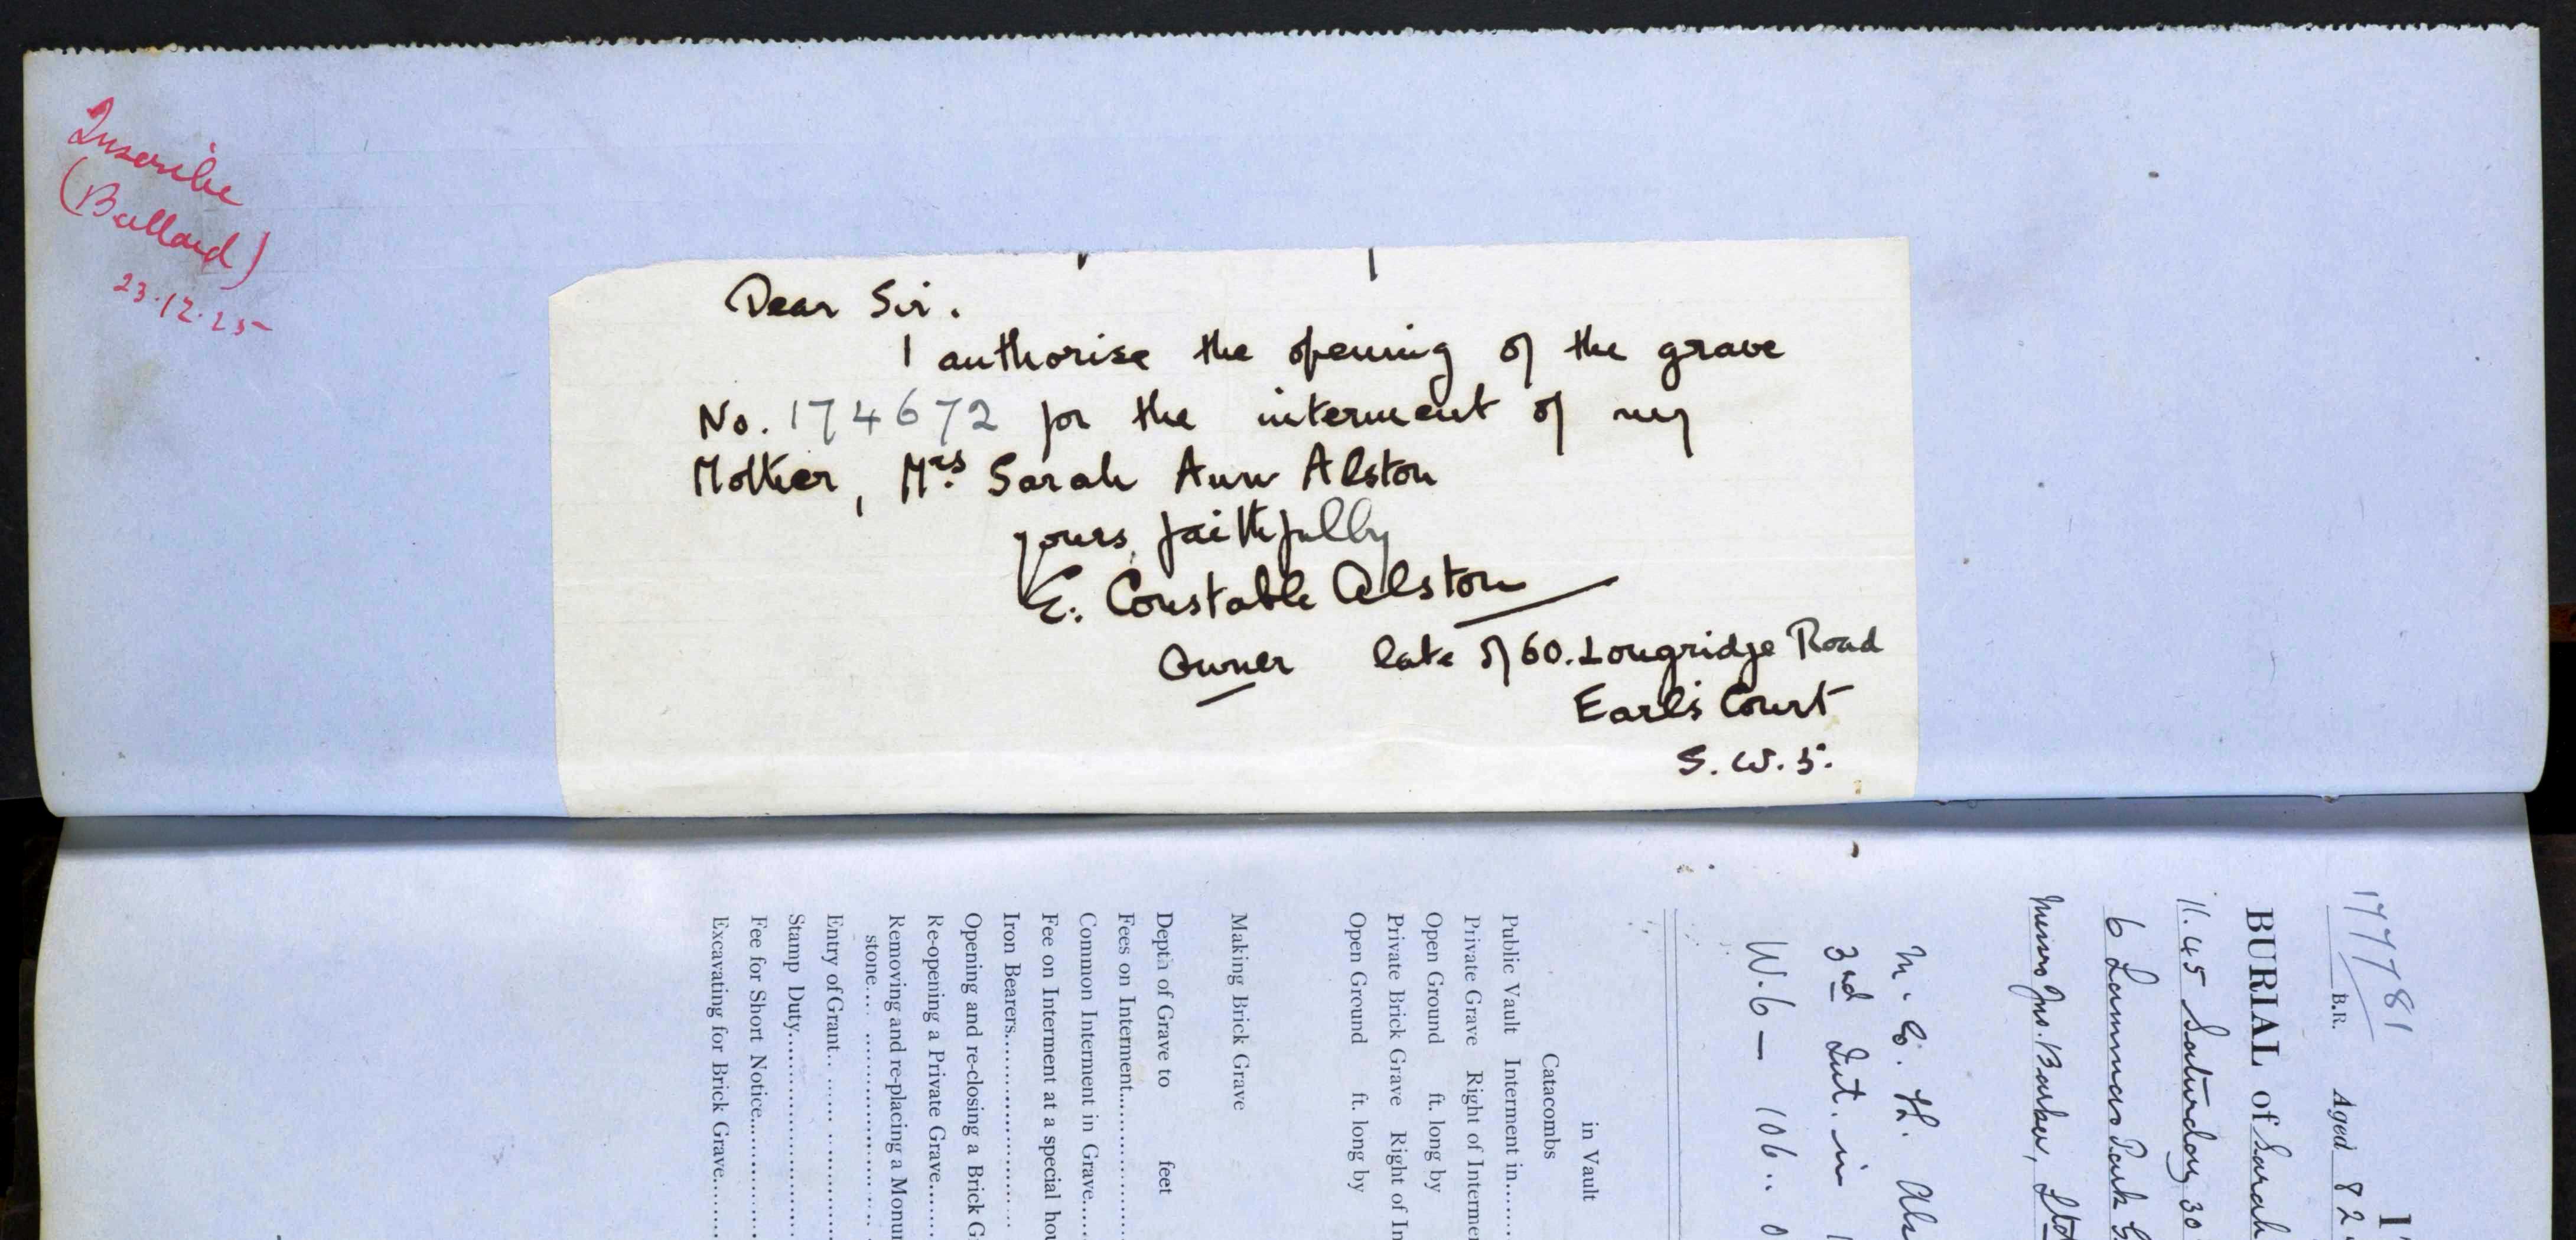 Inscribe
(Ballard)
23.12.25
Dear Sir.
I authorise the opening of the grave
No. 174672 for the interment of my
Mother, Mrs Sarah Ann Alston
yours faithfully
E. Constable Alston
Owner late of 60. Longridge Road
Earl's Court
S. W. 5.
177781 B.R. Aged 82
BURIAL of Sarah
11.45 Saturday 30
6 Lammas Park G
Messrs Jno. Barker, Ltd
3rd Int. in
W.6 — 106..0
in Vault
Catacombs
Public Vault Interment in.......
Private Grave Right of Interme
Open Ground ft. long by
Private Brick Grave Right of In
Open Ground ft. long by
Making Brick Grave
Depth of Grave to feet
Fees on Interment..................
Common Interment in Grave.....
Fee on Interment at a special hou
Iron Bearers..........................
Opening and re-closing a Brick G
Re-opening a Private Grave......
Removing and re-placing a Monu
stone... ........................
Entry of Grant... ...... ............
Stamp Duty..........................
Fee for Short Notice................
Excavating for Brick Grave.......